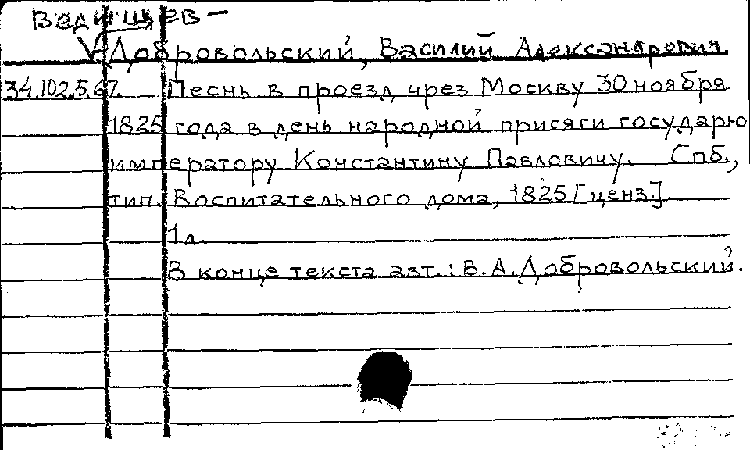 Вадищев —
Добровольский, Василий Александрович
34.102.5.67. Песнь в проезд чрез Москву 30 ноября
1825 года в день народной присяги государю
императору Константину Павловичу. Спб.,
тип. Воспитательного дома, 1825 [ценз.]
1 л.
В конце текста авт.: В. А. Добровольский.